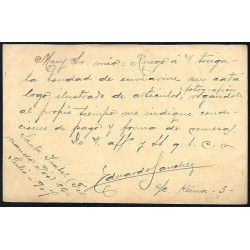 Muy Sr. mio: Ruego á V. tenga
la bondad de enviarme su cata
logo ilustrado de articulos fotografícos rogándole
al propio tiempo me indique condi-
ciones de pago y forma de remesa.
De V. affº y S. q. b. m
Eduardo Sanchez
s/c. Reina - 3 -
Santa Isabel (Fer
nando Póo)
Julio